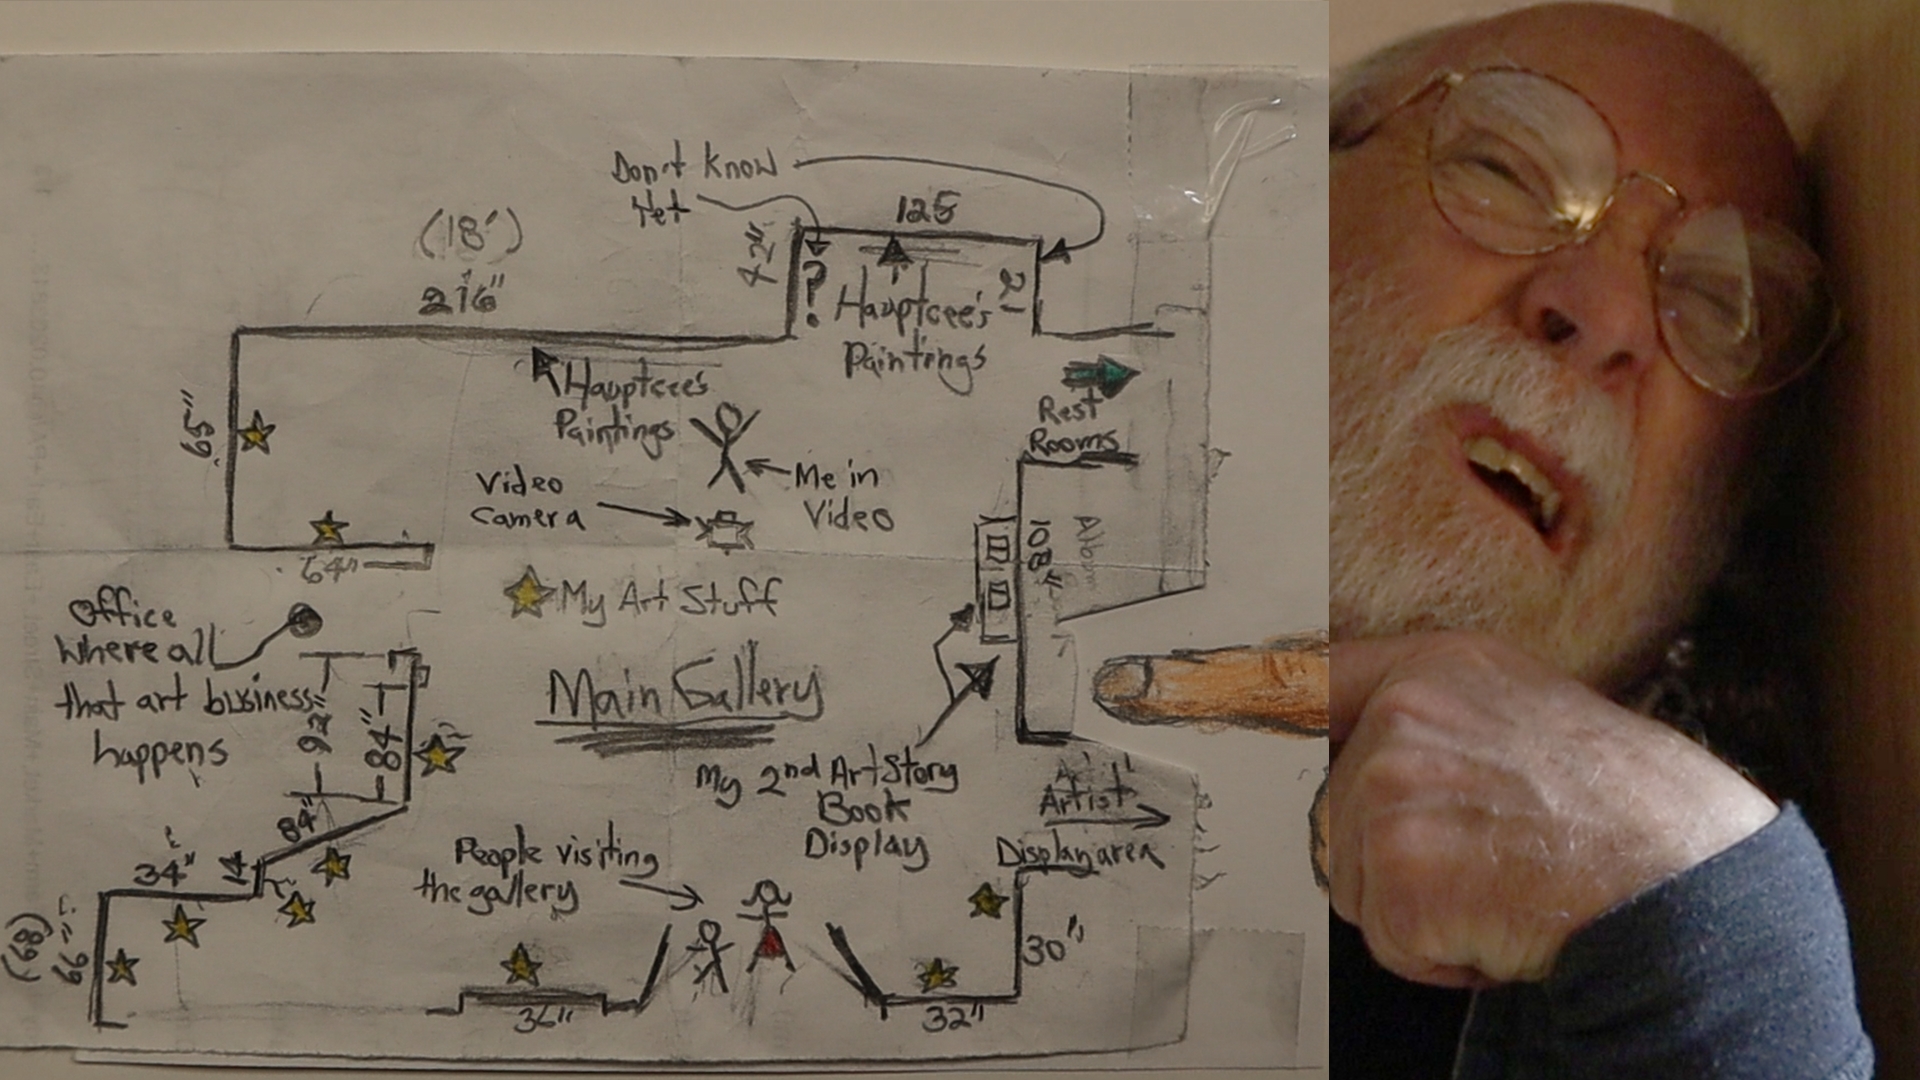 Don't know
Yet
125
(18')
216"
42"
?
Hauptcee's
Paintings
Hauptcee's
Paintings
65"
Rest
Rooms
Video
Camera
Me in
Video
108"
64"
My Art Stuff
Office
Where all
that art business
happens
92"
84"
Main Gallery
My 2nd Art Story
Book
Display
Artist
Display area
84"
34"
14
People visiting
the gallery
(68)
66"
36"
32"
30"